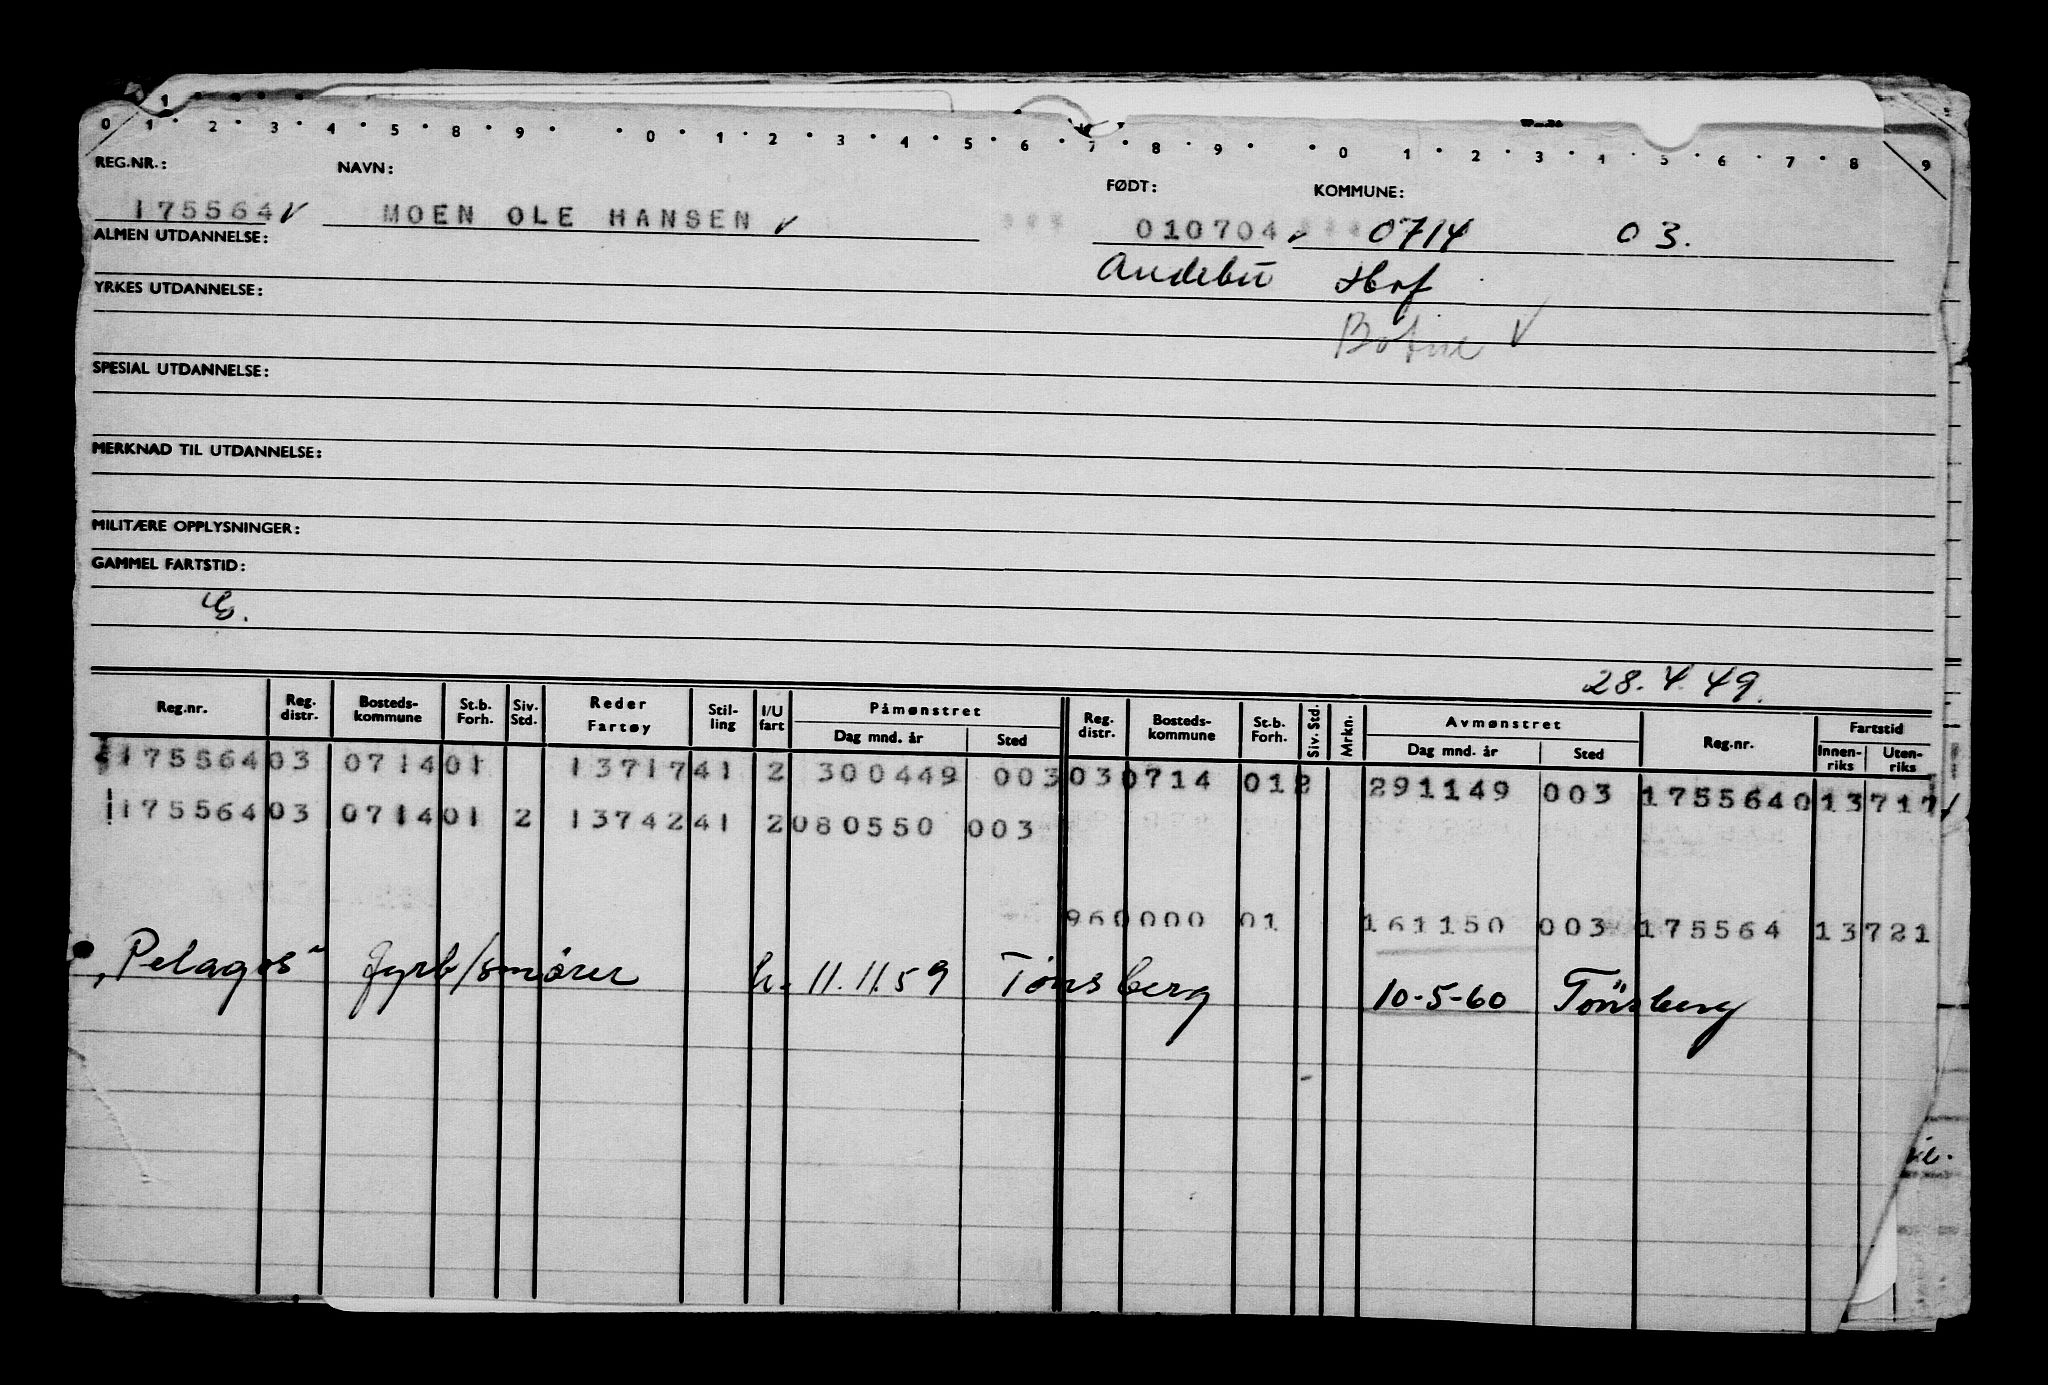 0 1 2 3 4 5 8 9 0 1 2 3 4 5 6 7 8 9 0 1 2 3 4 5 6 7 8 9
REG.NR.: NAVN: FØDT: KOMMUNE:
175564 MOEN OLE HANSEN 010704 0714 03.
ALMEN UTDANNELSE: Andebu Hof
YRKES UTDANNELSE: Botne
SPESIAL UTDANNELSE:
MERKNAD TIL UTDANNELSE:
MILITÆRE OPPLYSNINGER:
GAMMEL FARTSTID:
28.4.49.
Reg.nr. Reg. distr. Bosteds-kommune St.b. Forh. Siv. Std. Reder Fartøy Stil-ling I/U fart Påmønstret Dag mnd. år Sted Reg. distr. Bosteds-kommune St.b. Forh. Siv. Std. Mrkn. Avmønstret Dag mnd. år Sted Reg.nr. Fartstid Innen-riks Uten-riks
175564 03 0714 01 13717 41 2 300449 003 03 0714 01 2 291149 003 175564 0 13 717
175564 03 0714 01 2 13742 41 2 080550 003
96 0000 01 161150 003 175564 13 721
"Pelagos" fyrb/smører h. 11.11.59 Tønsberg 10-5-60 Tönsberg